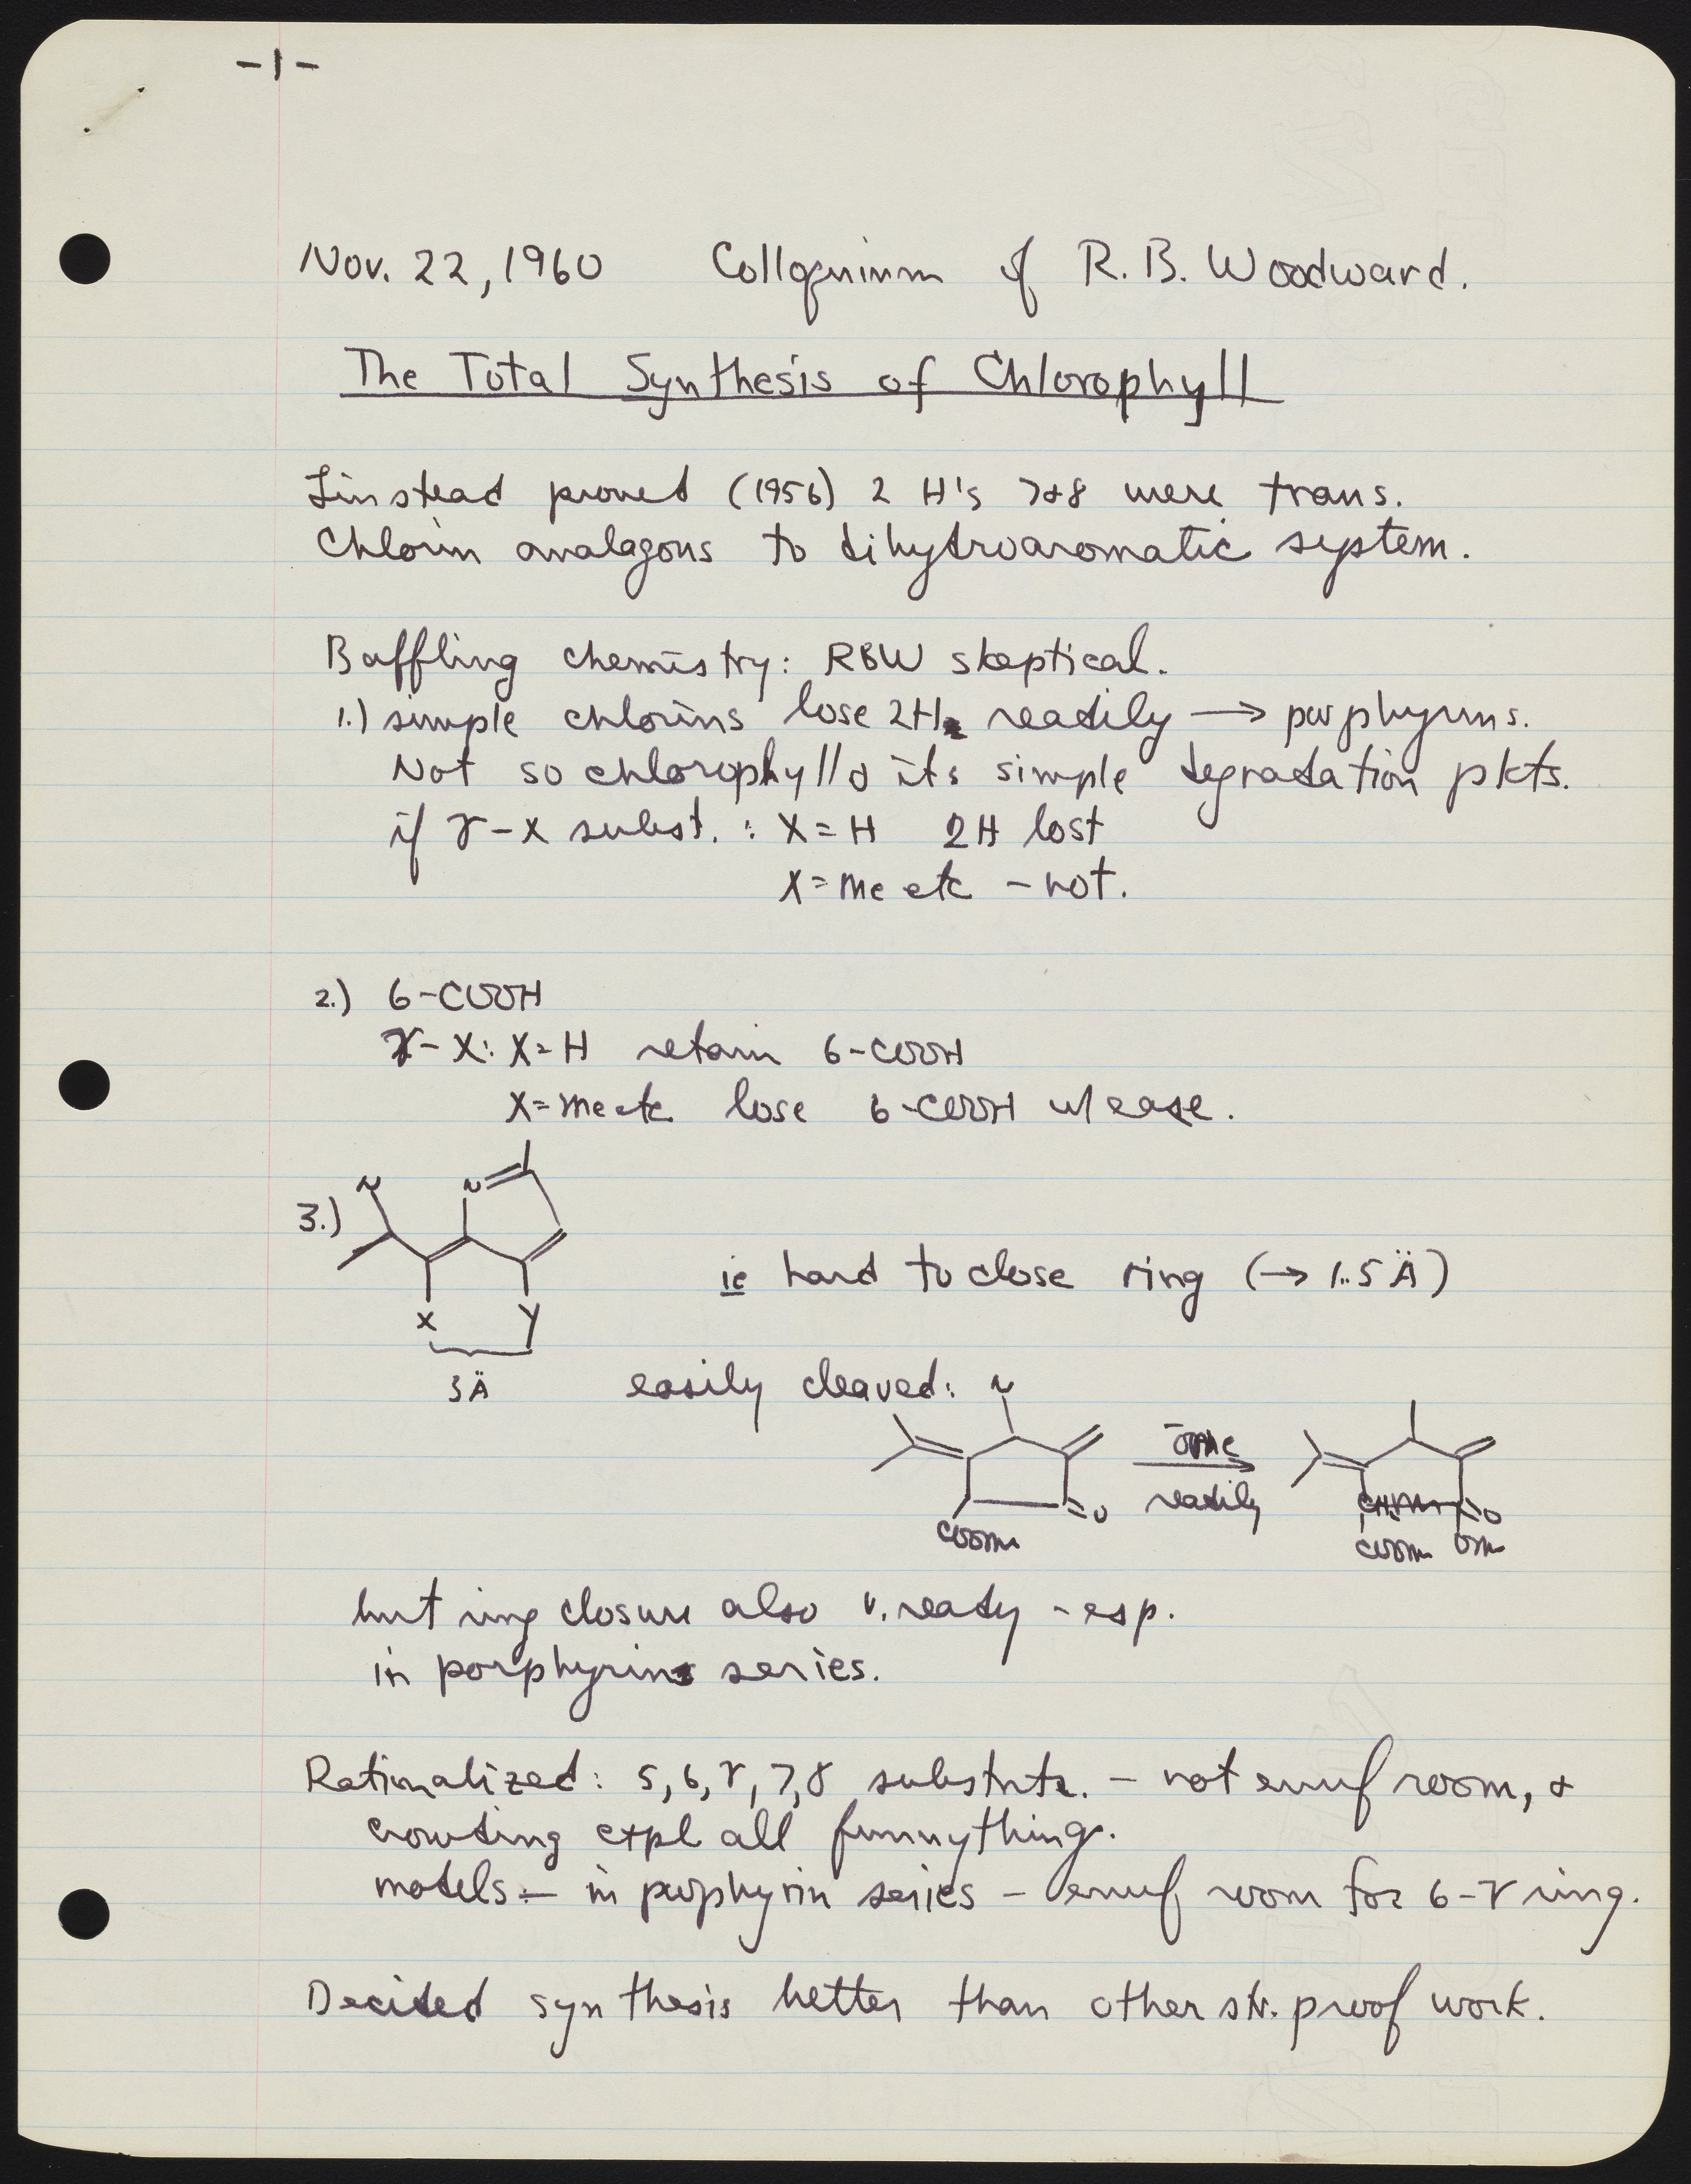 -1-
Nov. 22, 1960 Colloquium of R. B. Woodward.
The Total Synthesis of Chlorophyll
Linstead proved (1956) 2 H's 7&8 were trans.
Chlorin analagous to dihydroaromatic system.
Baffling chemistry: RBW skeptical.
1.) simple chlorins lose 2H readily → porphyrins.
Not so chlorophyll & its simple degradation pdts.
if γ-X subst. : X=H 2H lost
X=Me etc - not.
2.) 6-COOH
γ-X: X=H retain 6-COOH
X=Me etc lose 6-COOH w/ ease.
3.)
N N
X Y
3Å
ie hard to close ring (→ 1.5Å)
easily cleaved:
N
COOMe O
-OMe
readily
O
COOMe OMe
but ring closure also v. ready - esp.
in porphyrin series.
Rationalized: 5, 6, γ, 7, 8 substnts. - not enuf room, &
crowding expl all funnythings.
models:- in porphyrin series - enuf room for 6-γ ring.
Decided synthesis better than other str. proof work.